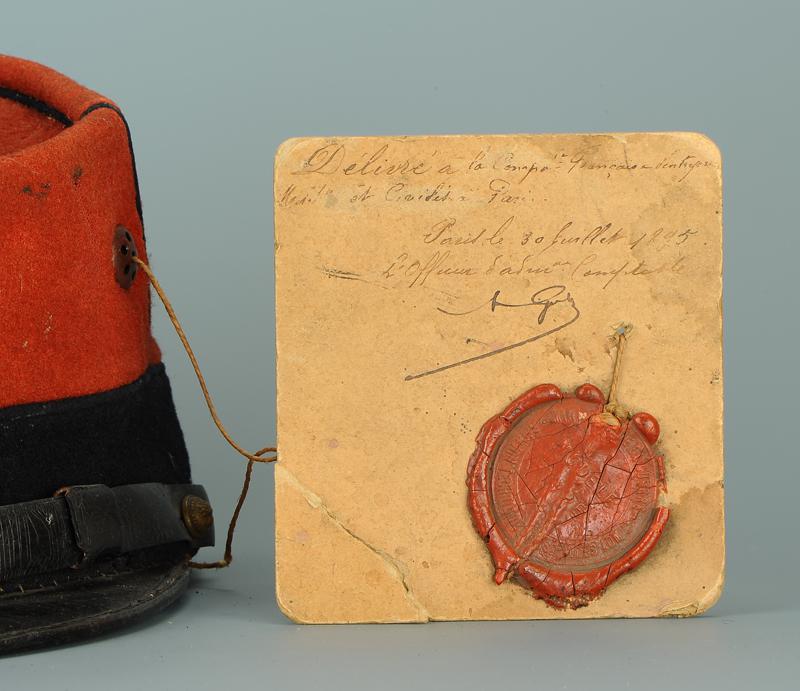 Délivré à la Comp.ie Française d'entrep
et Civiles à Paris
Paris le 30 Juillet 1895.
L'Officier d'adm.on Comptable